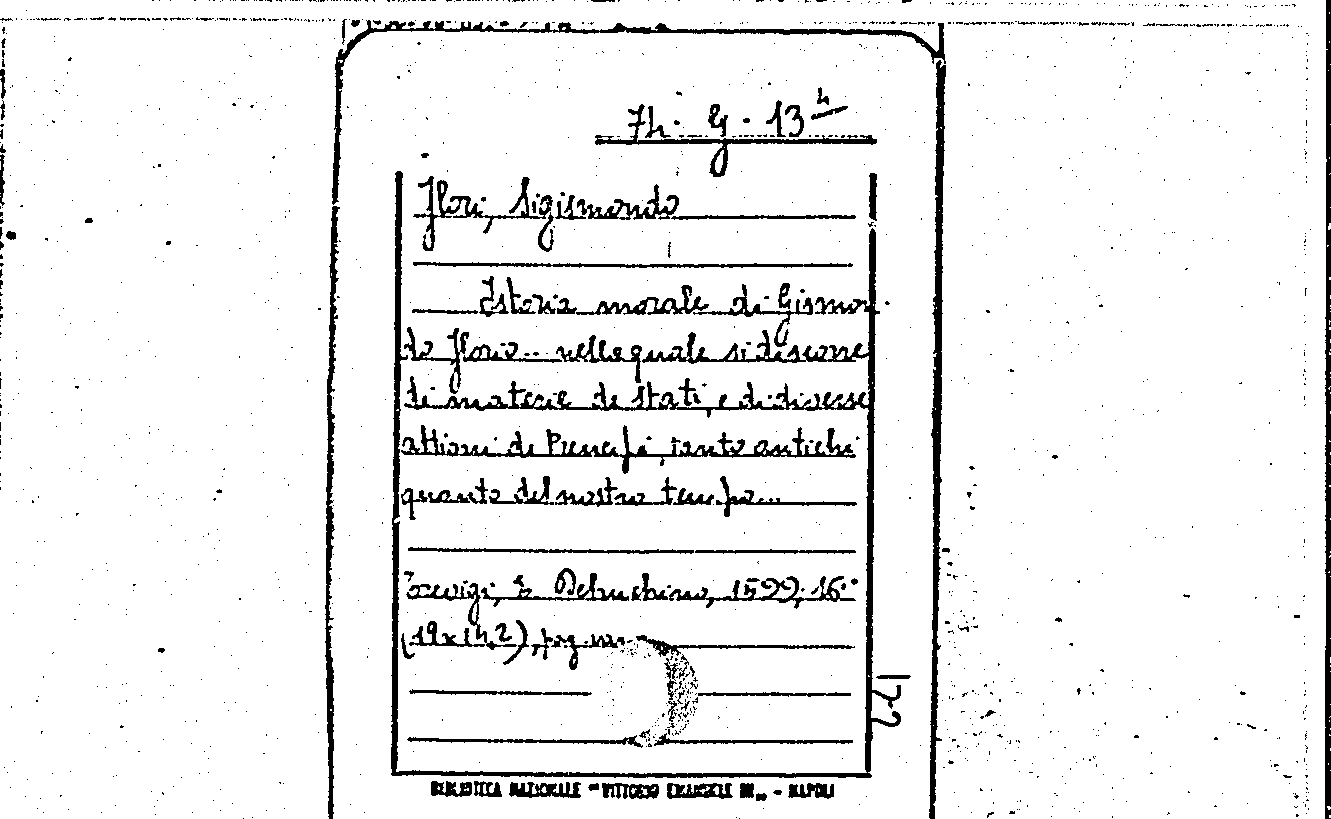 74. G. 13 4
Flori, Sigismondo
Istoria morale di Gismon-
do Florio... nella quale si discorre
di materie di Stati, e di diverse
attioni di Prencipi, tanto antichi
quanto del nostro tempo...
Trevigi, E. Dehuchino, 1599, 16°
(19x14,2), pag. nu
177
BIBLIOTECA NAZIONALE "VITTORIO EMANUELE III" - NAPOLI